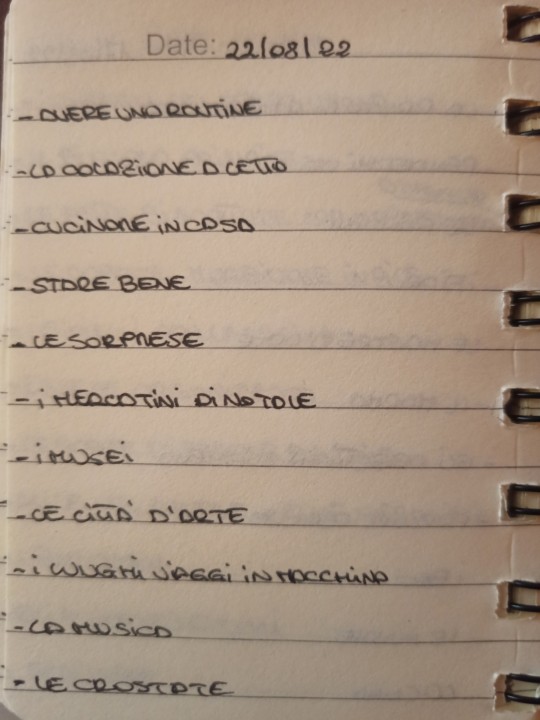 Date: 22/08/22
- AVERE UNA ROUTINE
- LA COLAZIONE A LETTO
- CUCINARE IN CASA
- STARE BENE
- LE SORPRESE
- I MERCATINI DI NATALE
- I MUSEI
- LE CITTÀ D'ARTE
- I LUNGHI VIAGGI IN MACCHINA
- LA MUSICA
- LE CROSTATE